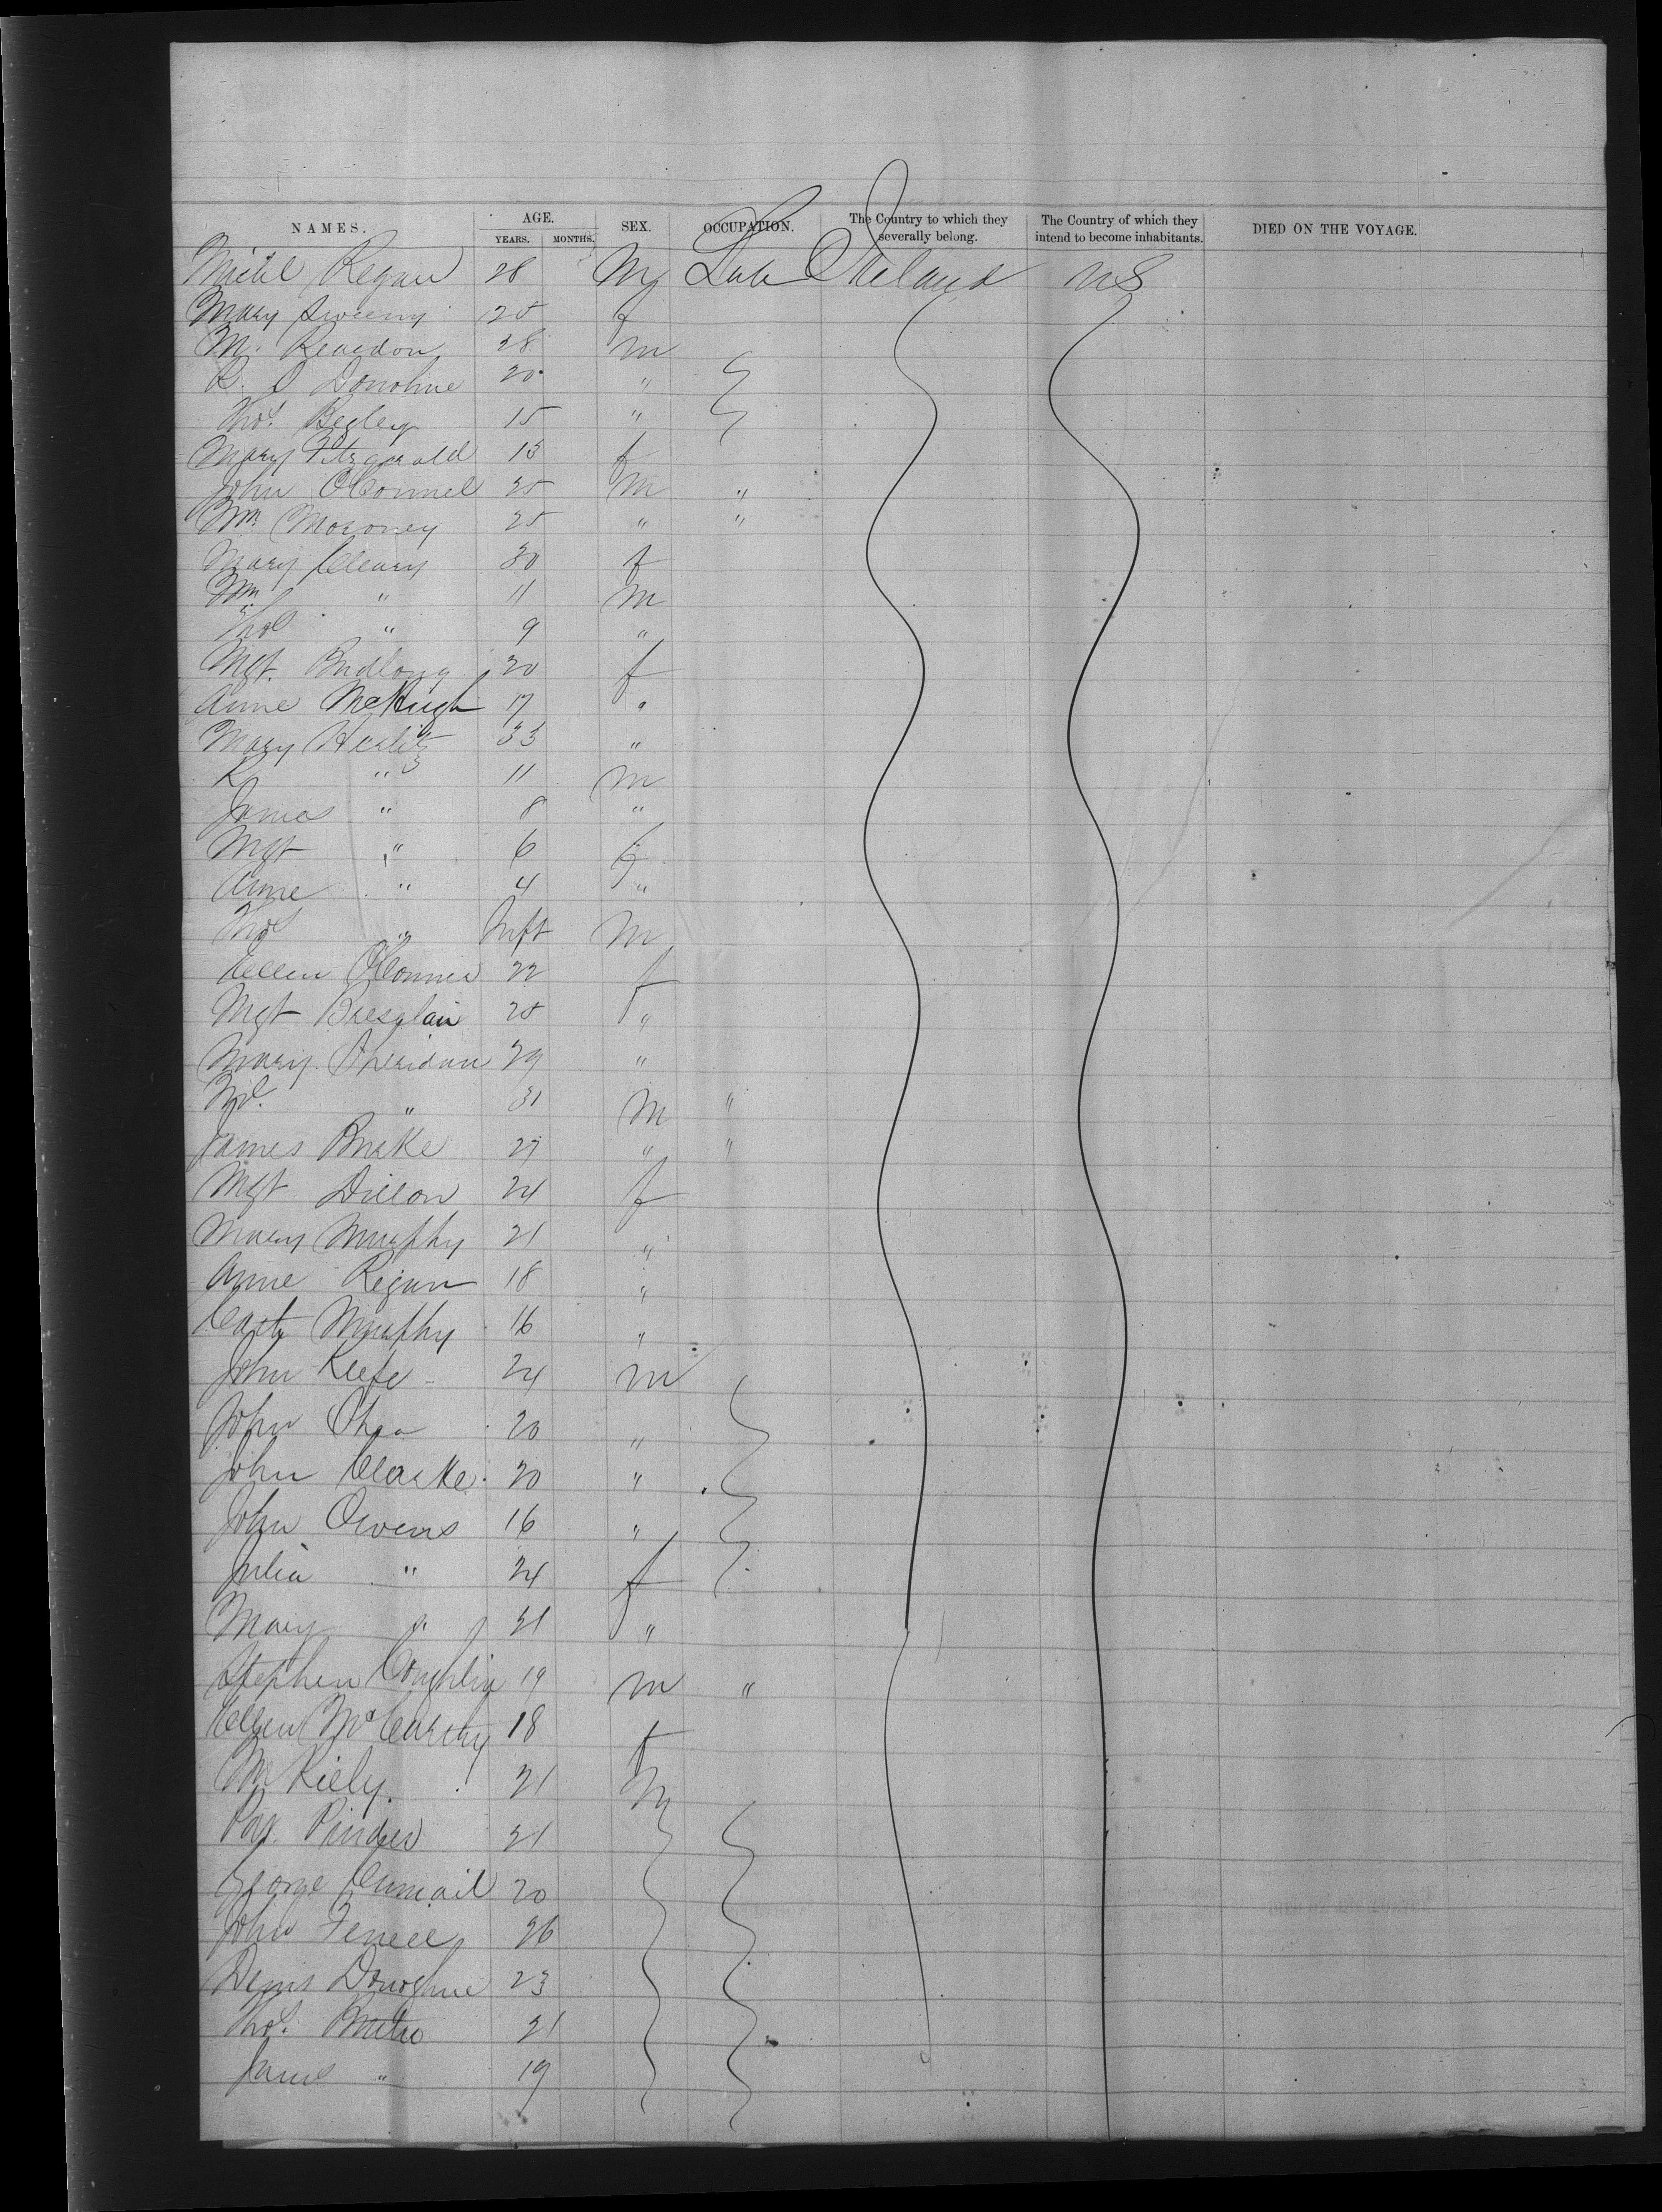 NAMES. AGE. YEARS. MONTHS. SEX. OCCUPATION. The Country to which they severally belong. The Country of which they intend to become inhabitants. DIED ON THE VOYAGE.
Michl Regan 28 M Lab Ireland US
Mary Sweeny 25 f
M. Reardon 28 m
R. O Donohue 20 "
Thos. Begley 15 "
Mary Fitzgerald 13 f
John OConnel 25 m "
Wm. Moroney 25 " "
Mary Cleary 30 f
Wm " 11 m
Thos " 9 "
Mgt. 20 f
Anne McHugh 17 "
Mary 33 "
" 11 m
James " 8 "
Mgt " 6 f
Anne " 4 "
Thos " Inft m
Ellen OConnor 22 f
Mgt 25 "
Mary Sheridan 29 "
" 31 m "
James Burke 27 " "
Mgt Dillon 24 f
Mary Murphy 21 "
Anne Regan 18 "
Murphy 16 "
John Keefe 24 m
John Shea 20 "
John Clarke 20 "
John Owens 16 "
Julia " 24 f
Mary " 21 "
Stephen Coughlin 19 m "
Ellen McCarthy 18 f
M Kiely 21 m
Pat. Pinder 21
George 20
John 26
Denis Donoghue 23
Thos. 21
James " 19